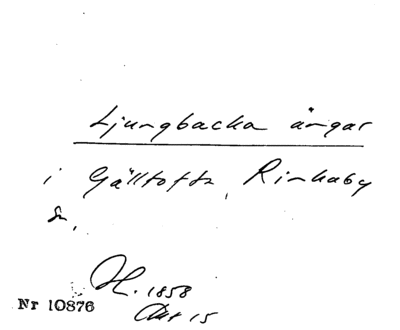 Ljungbacka ängar
i Gälltofta, Rinkaby
sn.
H. 1858
Akt 15
Nr 10876